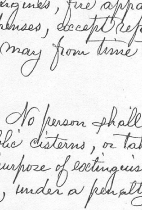 engines, fire appa
penses, except rep
may from time
No person shall
lic cisterns, or ta
urpose of extinguis
, under a penalty